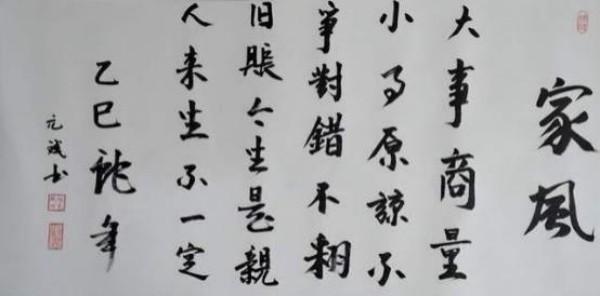 家風
大事商量
小事原諒不
爭對錯不翻
旧賬今生是親
人来生不一定
乙巳蛇年
元书